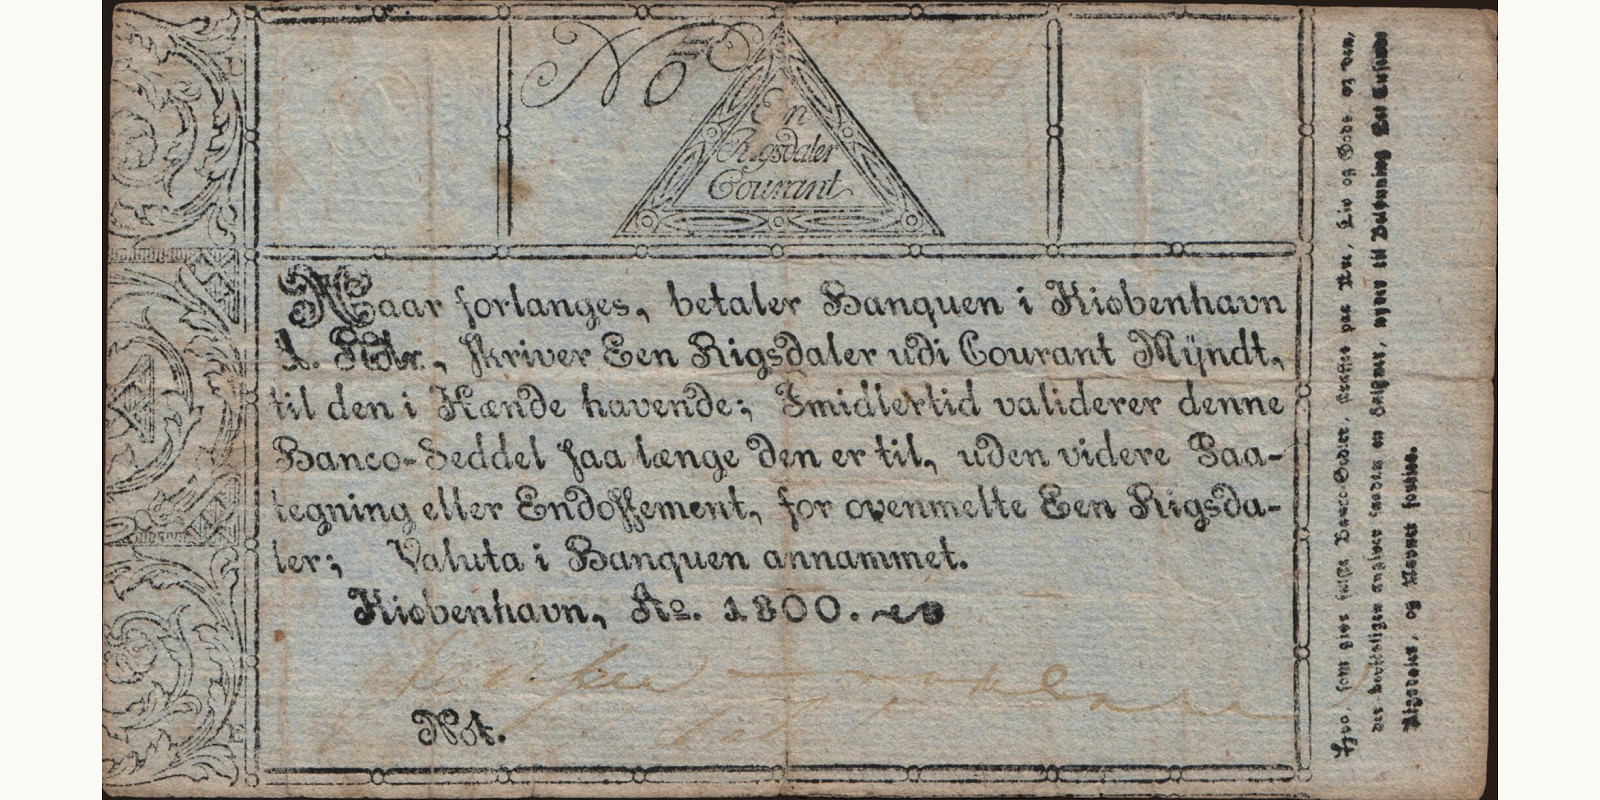 No
En
Rigsdaler
Courant
Naar forlanges, betaler Banquen i Kiøbenhavn
1. Rdlr., skriver Een Rigsdaler udi Courant Mÿndt,
til den i Hænde havende; Imidlertid validerer denne
Banco-Seddel saa længe den er til, uden videre Paa-
tegning eller Endossement, for ovenmelte Een Rigsda-
ler; Valuta i Banquen annammet.
Kiøbenhavn, Ao. 1800.
Not.
Hvo, som giør falske Banco-Sedler, straffes paa Ære, Liv og Gods, og den,
der beviisligen angiver saadan en Falsner, nyder til Belønning Eet Tusinde
Rigsdaler, og Navnet forties.